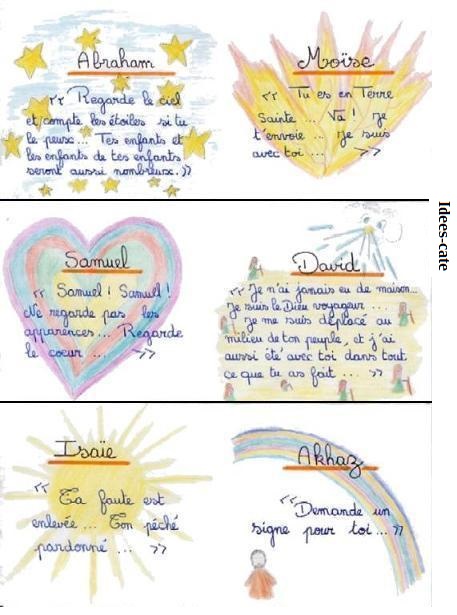 Abraham
« Regarde le ciel
et compte les étoiles si tu
le peux... Tes enfants et
les enfants de tes enfants
seront aussi nombreux. »
Moïse
« Tu es en Terre
Sainte ... Va ! Je
t'envoie ... Je suis
avec toi ... »
Samuel
« Samuel ! Samuel !
Ne regarde pas les
apparences... Regarde
le coeur ... »
David
« Je n'ai jamais eu de maison...
Je suis le Dieu voyageur ...
Je me suis déplacé au
milieu de ton peuple, et j'ai
aussi été avec toi dans tout
ce que tu as fait ... »
Isaïe
« Ta faute est
enlevée ... Ton péché
pardonné ... »
Akhaz
« Demande un
signe pour toi... »
Idees-cate